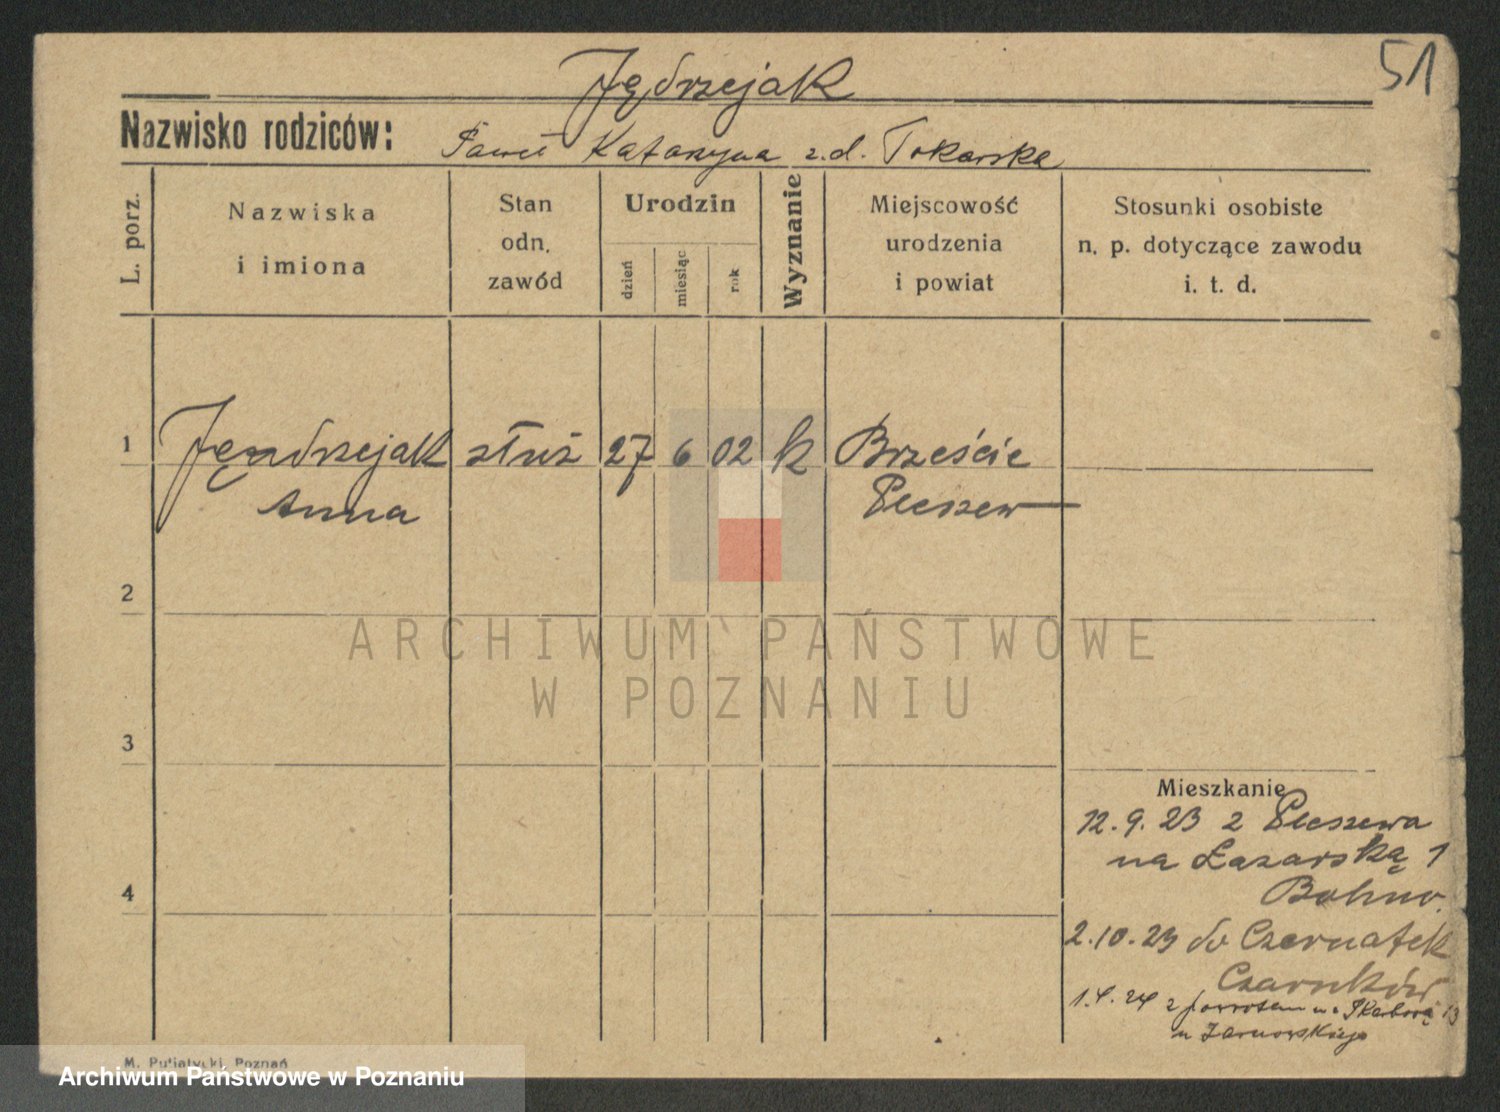 51
Jędrzejak
Nazwisko rodziców: Paweł Katarzyna z.d. Tokarska
L. porz.
Nazwiska
i imiona
Stan
odn.
zawód
Urodzin
dzień
miesiąc
rok
Wyznanie
Miejscowość
urodzenia
i powiat
Stosunki osobiste
n. p. dotyczące zawodu
i. t. d.
1 Jędrzejak służ 27 6 02 k Brzeście
Anna Pleszew
2
ARCHIWUM PAŃSTWOWE
W POZNANIU
3
Mieszkanie
12.9.23 z Pleszewa
na Łazarską 1
4
2.10.23 do Czernatek
Czarnków
1.4.24 z powrotem na Skarbową 13
M. Putiatycki, Poznań
Archiwum Państwowe w Poznaniu